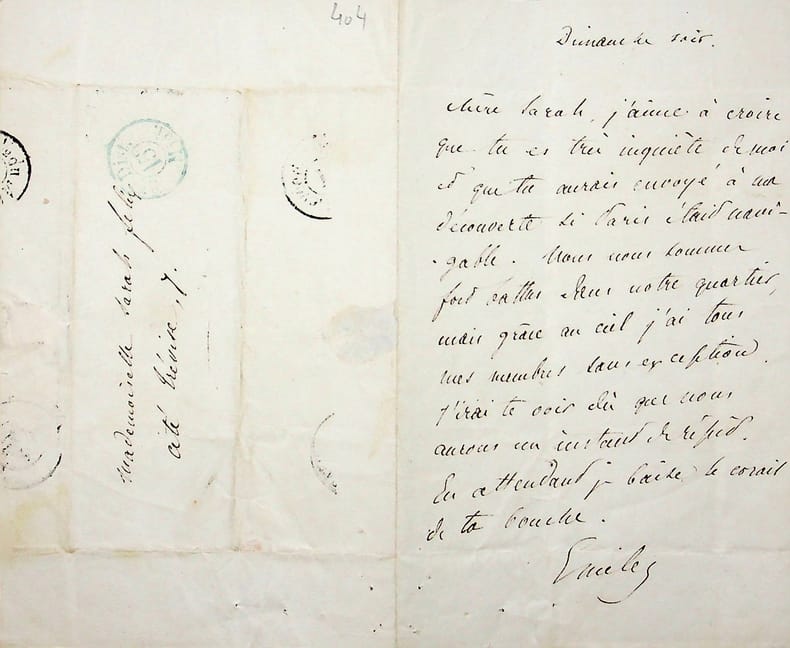 404
mademoiselle Sarah felix
cité trévise, 7.
Dimanche soir.
chère Sarah, j'aime à croire
que tu es très inquiète de moi
et que tu aurais envoyé à ma
découverte si Paris était navi-
-gable. Nous nous sommes
fort battus dans notre quartier,
mais grâce au ciel j'ai tous
mes membres sans exception.
J'irai te voir dès que nous
aurons un instant de répit.
En attendant je baise le corail
de ta bouche.
Emile